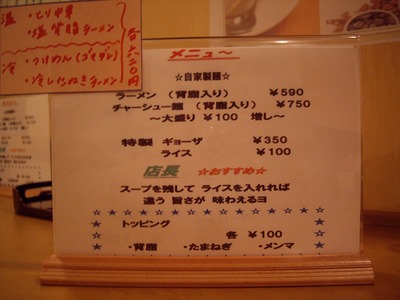 温 ・とり中華
・塩背脂ラーメン
冷 ・つけめん(ゴマダレ)
・冷したぬきラーメン
各六二〇円
メニュ〜
☆自家製麺☆
ラーメン (背脂入り) ￥590
チャーシュー麺 (背脂入り) ￥750
〜大盛り ￥100 増し〜
特製 ギョーザ ￥350
ライス ￥100
店長 ☆おすすめ☆
スープを残して ライスを入れれば
違う 旨さが 味わえるヨ
トッピング
各 ￥100
・背脂 ・たまねぎ ・メンマ